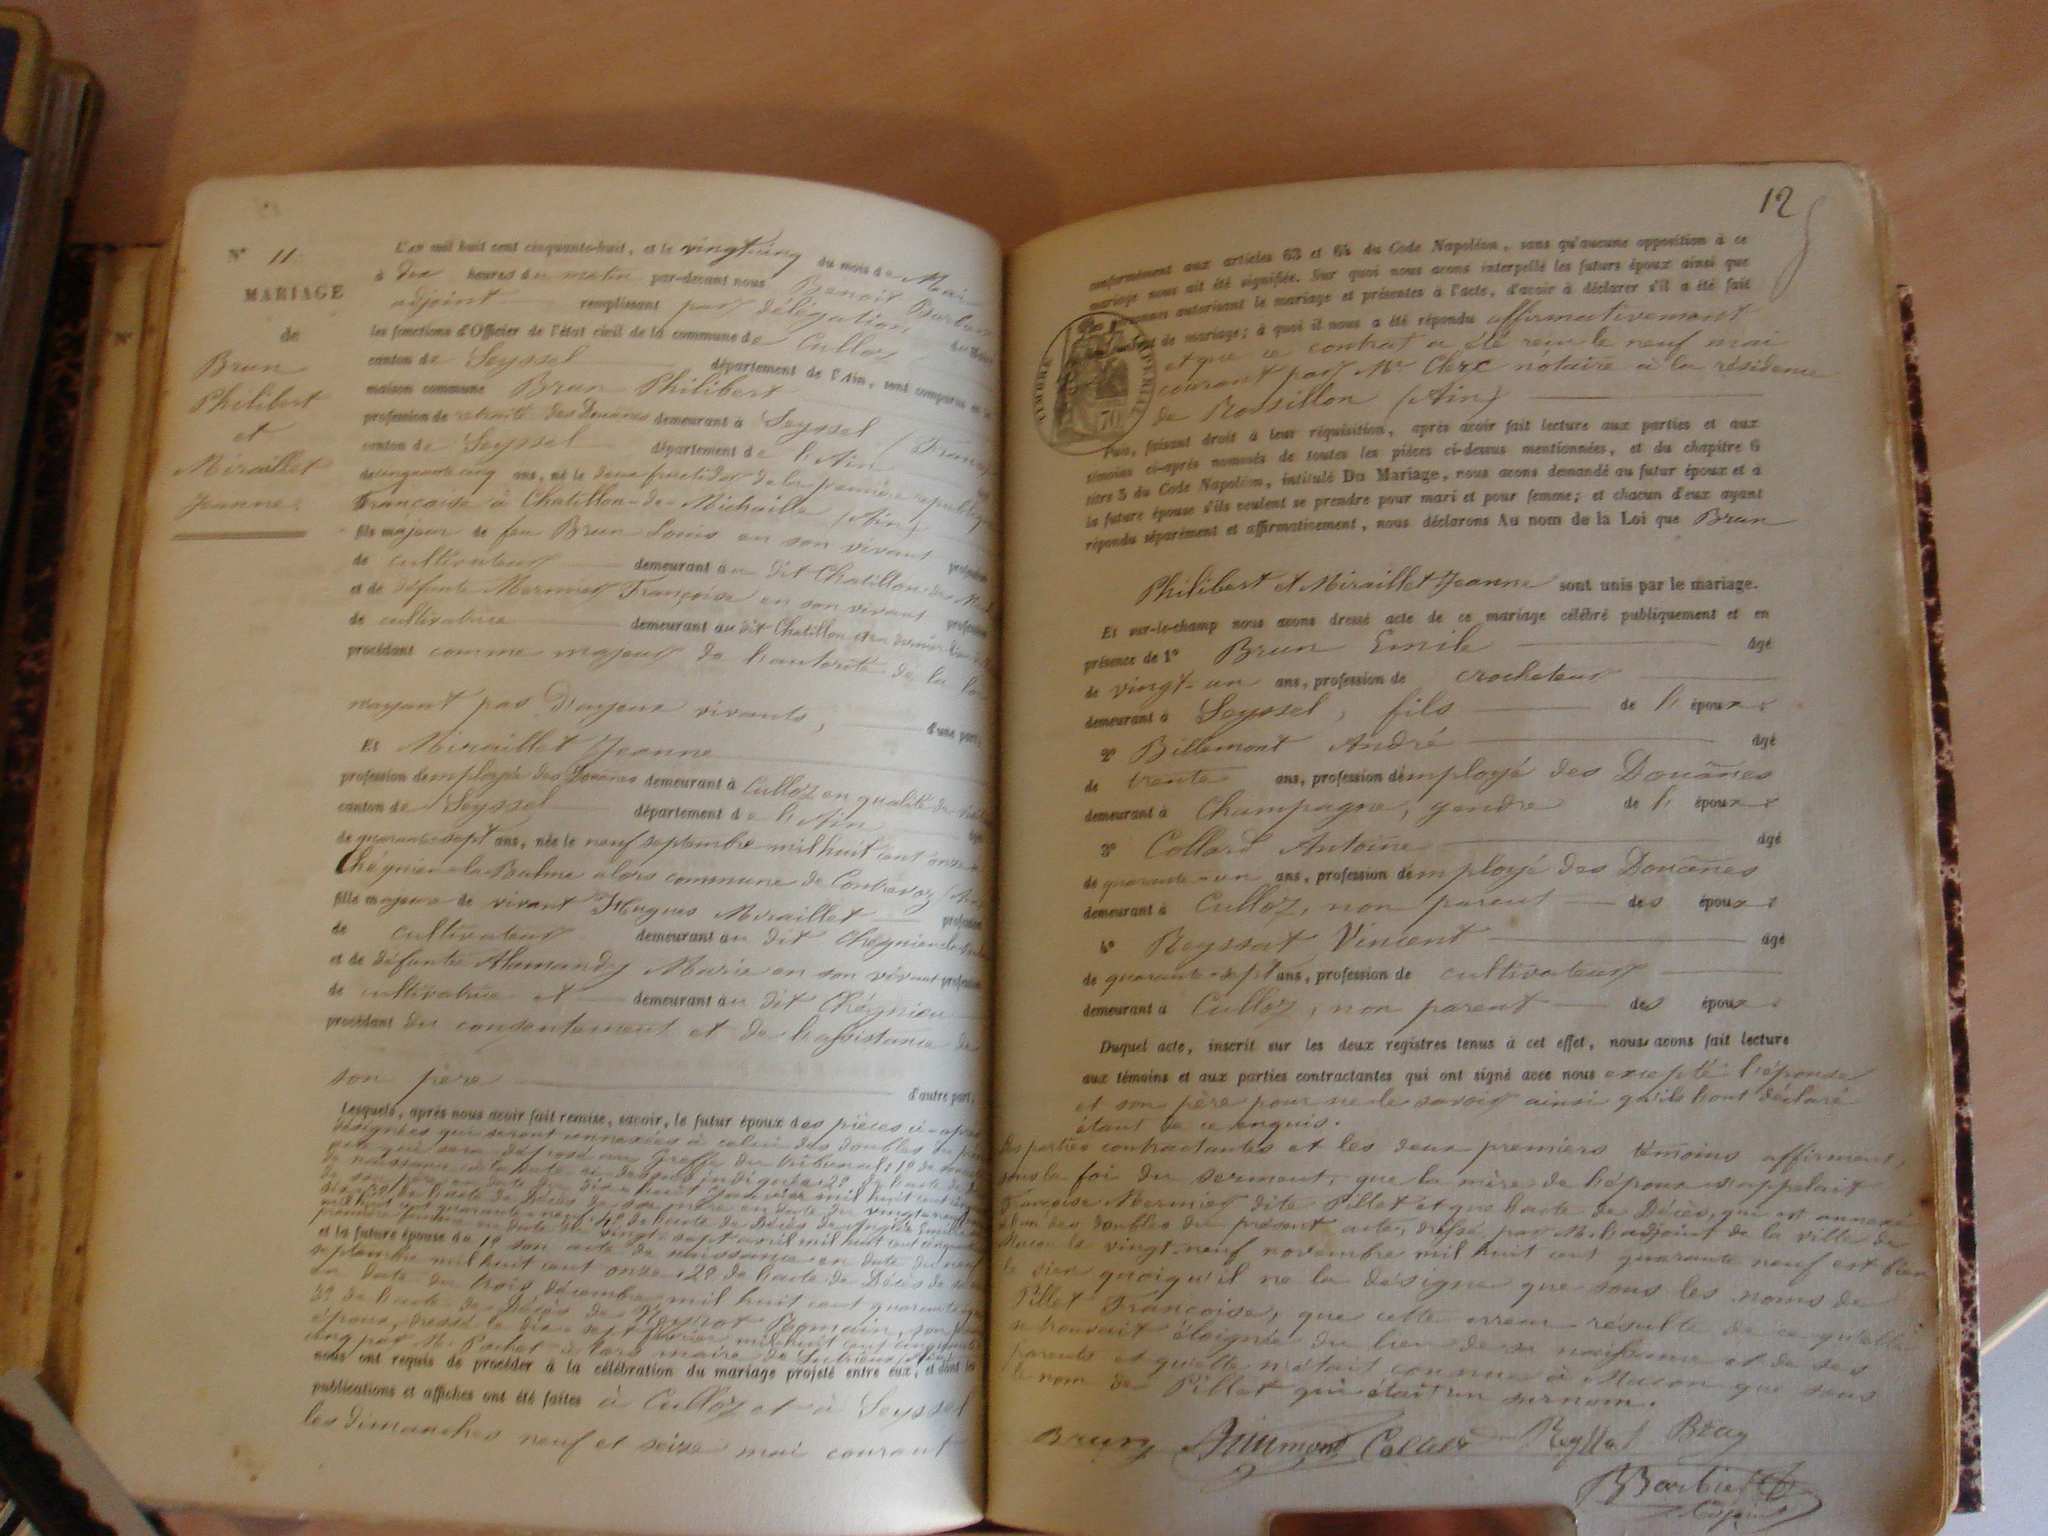 N° 11.
MARIAGE
de
Brun
Philibert
et
Miraillet
Jeanne.
L'an mil huit cent cinquante-huit, et le vingt cinq du mois de Mai
à dix heures du matin par-devant nous Benoit
adjoint remplissant par délégation
les fonctions d'Officier de l'état civil de la commune de Culloz
canton de Seyssel département de l'Ain, sont comparus en la
maison commune Brun Philibert
profession de retraité des Douanes demeurant à Seyssel
canton de Seyssel département de l'Ain
de cinquante cinq ans, né le deux fructidor de la première république
Française à Chatillon-de-Michaille (Ain)
fils majeur de feu Brun Louis en son vivant profession
de cultivateur demeurant au dit Chatillon de
et de défunte Mermier Françoise en son vivant profession
de cultivatrice demeurant au dit Chatillon
procédant comme majeur de l'autorité de la loi
n'ayant pas d'ayeux vivants, d'une part;
Et Miraillet Jeanne
profession d'employée des Douanes demeurant à Culloz en qualité de
canton de Seyssel département de l'Ain âgé
de quarante-sept ans, née le neuf septembre mil huit cent onze
Chégnieu-la-Balme alors commune de Contrevoz (Ain
fille majeure de vivant Hugues Miraillet profession
de cultivateur demeurant au dit Chégnieu-la-
et de défunte Alemandy Marie en son vivant profession
de cultivatrice et demeurant au dit Chégnieu
procédant du consentement et de l'assistance de
son père d'autre part.
Lesquels, après nous avoir fait remise, savoir, le futur époux des pièces ci-après
désignées qui seront annexées à celui des doubles du
qui sera déposé au Greffe du tribunal: 1° de
de naissance à la date ci-dessus indiquée 2° de l'acte de
en date du dix-huit janvier mil huit cent
3° de l'acte de décès de sa mère en date du vingt neuf
mil huit cent quarante-neuf 4° de l'acte de décès de
première femme en date du vingt-sept avril mil huit cent cinquante
et la future épouse de 1° son acte de naissance en date du neuf
septembre mil huit cent onze 2° de l'acte de Décès de sa
la date du trois décembre mil huit cent quarante
3° de l'acte de Décès de Romain, son
époux, dressé le dix-sept février mil huit cent cinquante
cinq par M. Pochet alors maire de
nous ont requis de procéder à la célébration du mariage projeté entre eux, et dont les
publications et affiches ont été faites à Culloz et à Seyssel
les dimanches neuf et seize mai courant
12
conformément aux articles 63 et 64 du Code Napoléon, sans qu'aucune opposition à ce
mariage nous ait été signifiée. Sur quoi nous avons interpellé les futurs époux ainsi que
les personnes autorisant le mariage et présentes à l'acte, d'avoir à déclarer s'il a été fait
contrat de mariage; à quoi il nous a été répondu affirmativement
et que ce contrat a été reçu le neuf mai
courant par Me Clerc notaire à la résidence
de Rossillon (Ain)
TIMBRE IMPERIAL
70
Puis, faisant droit à leur réquisition, après avoir fait lecture aux parties et aux
témoins ci-après nommés de toutes les pièces ci-dessus mentionnées, et du chapitre 6
titre 5 du Code Napoléon, intitulé Du Mariage, nous avons demandé au futur époux et à
la future épouse s'ils veulent se prendre pour mari et pour femme; et chacun d'eux ayant
répondu séparément et affirmativement, nous déclarons Au nom de la Loi que Brun
Philibert et Miraillet Jeanne sont unis par le mariage.
Et sur-le-champ nous avons dressé acte de ce mariage célébré publiquement et en
présence de 1° Brun Emile âgé
de vingt-un ans, profession de crocheteur
demeurant à Seyssel, fils de l'époux.
2° Billemont André âgé
de trente ans, profession d'employé des Douanes
demeurant à Champagne, gendre de l'époux
3° Collard Antoine âgé
de quarante-un ans, profession d'employé des Douanes
demeurant à Culloz, non parent des époux
4° Reyssat Vincent âgé
de quarante-sept ans, profession de cultivateur
demeurant à Culloz, non parent des époux.
Duquel acte, inscrit sur les deux registres tenus à cet effet, nous avons fait lecture
aux témoins et aux parties contractantes qui ont signé avec nous excepté l'épouse
et son père pour ne le savoir ainsi qu'ils l'ont déclaré
étant de ce enquis.
Les parties contractantes et les deux premiers témoins affirment,
sous la foi du serment, que la mère de l'époux s'appelait
Françoise Mermier dite Pillet et que l'acte de Décès, qui est annexé
à l'un des doubles du présent acte, dressé par M. l'adjoint de la ville de
Macon le vingt-neuf novembre mil huit cent quarante neuf est bien
le sien quoiqu'il ne la désigne que sous les noms de
Pillet Françoise, que cette erreur résulte de ce qu'elle
se trouvait éloignée du lieu de sa naissance et de ses
parents et qu'elle n'était connue à Macon que sous
le nom de Pillet qui était un surnom.
Brun Billemont Collard Reyssat Brun
B Barbier
Adjoint